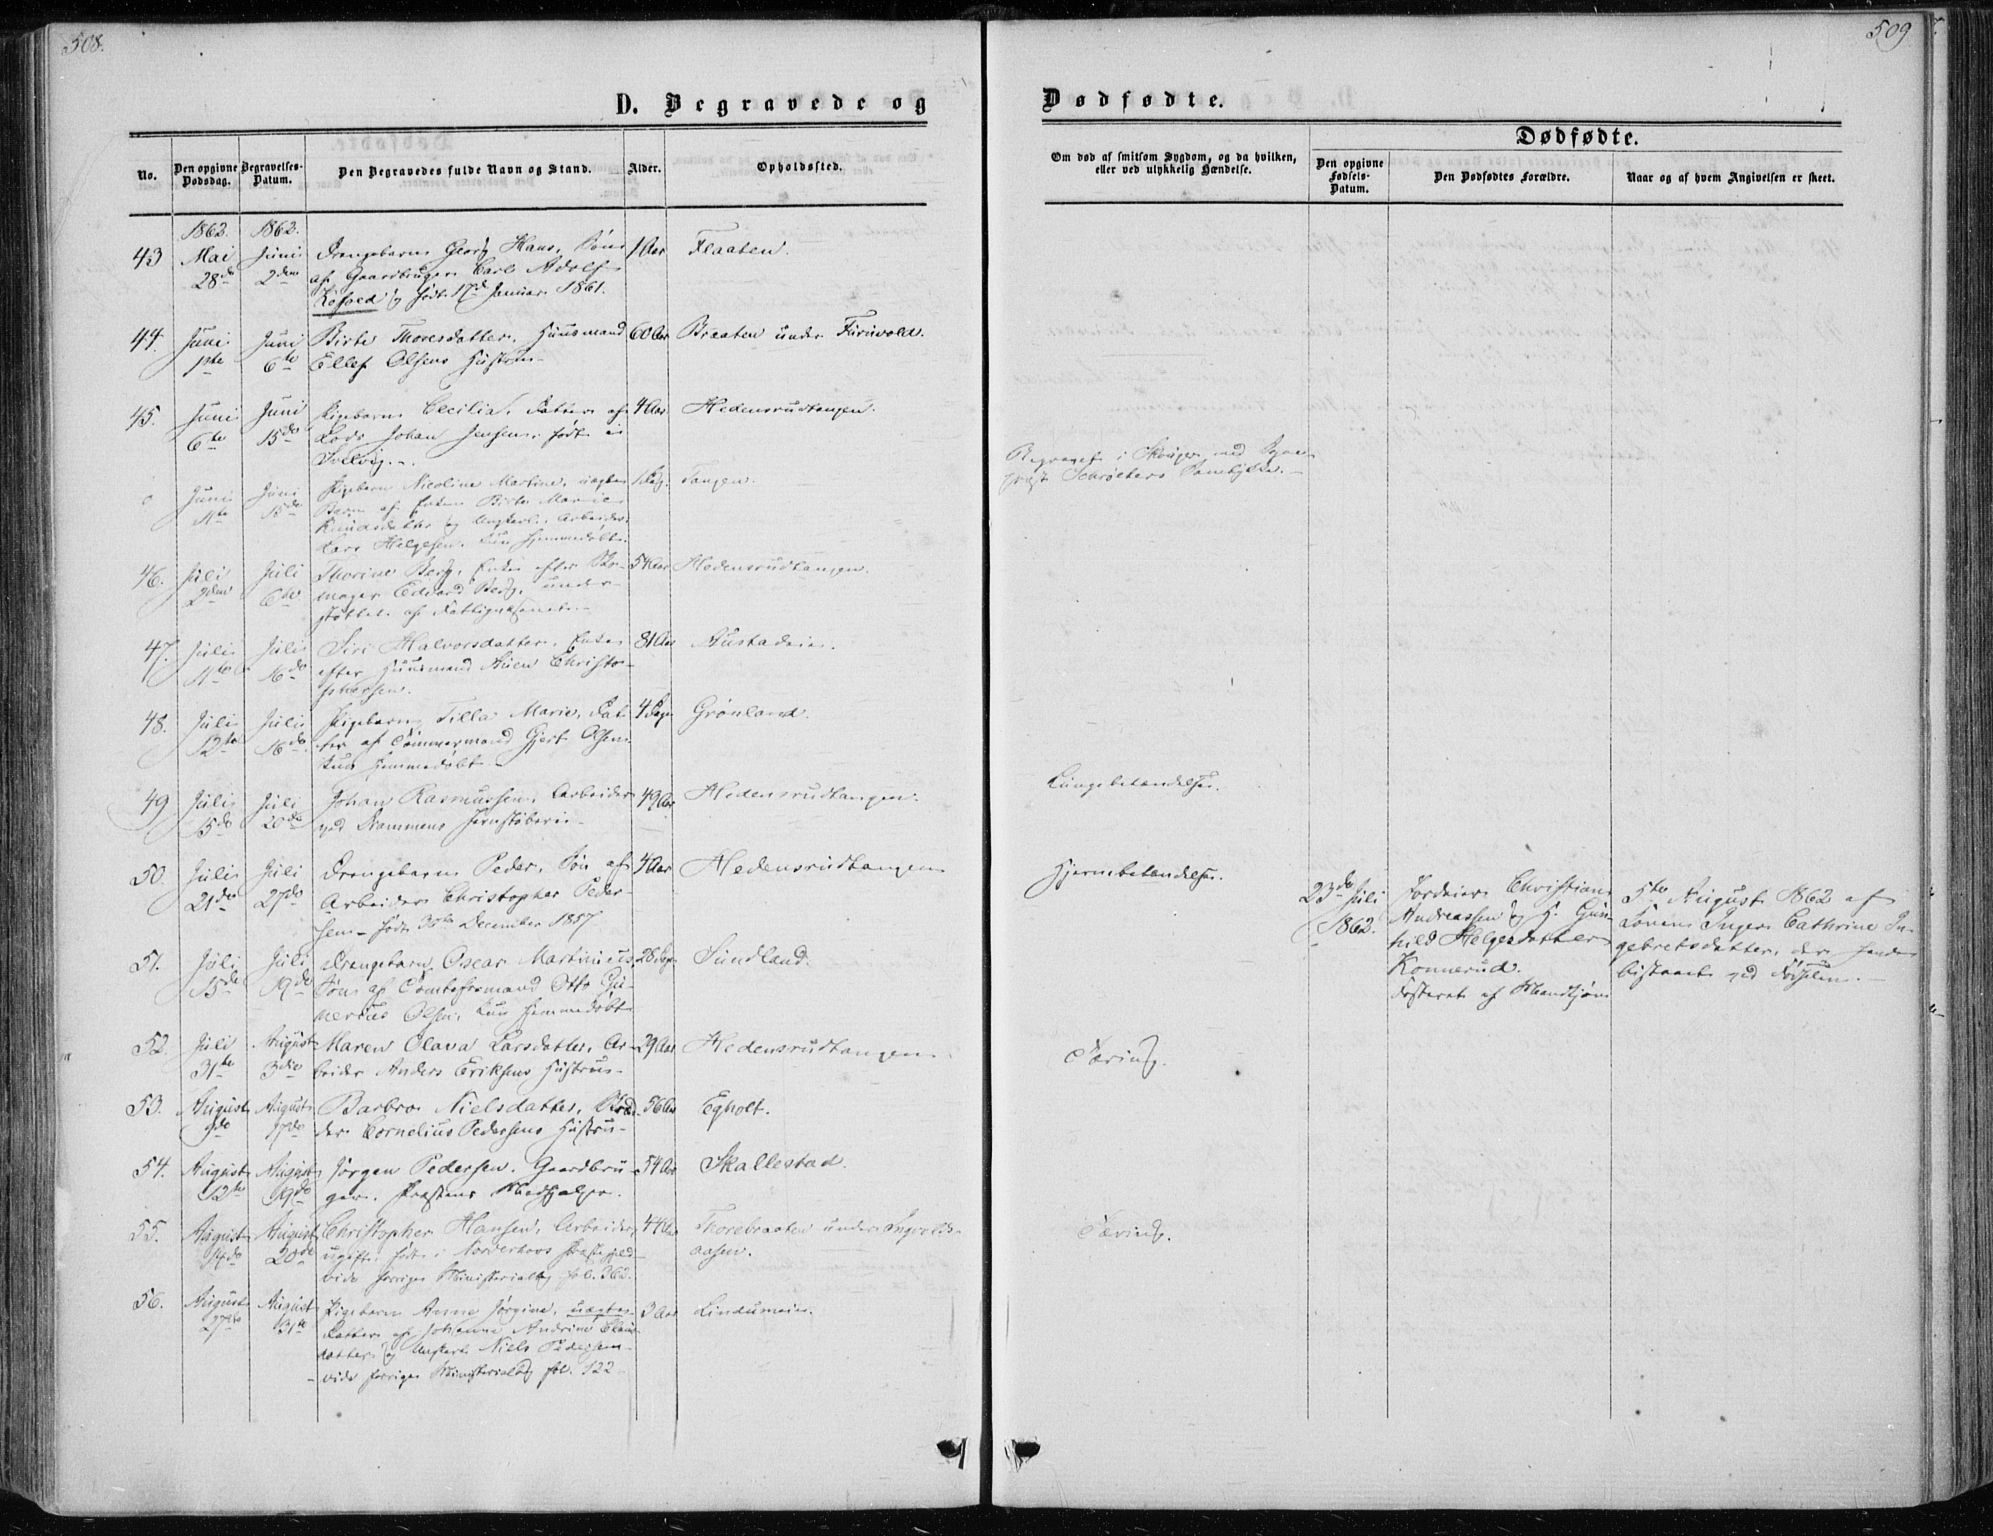 508.
D. Begravede og
No.
Den opgivne Dødsdag.
Begravelses-Datum.
Den Begravedes fulde Navn og Stand.
Alder.
Opholdssted.
1862. 1862.
43 Mai Juni Drengebarn Georg Hans, Søn 1 Aar Flaaten.
28de 2den af Gaardbruger Carl Adolf
født 17de Januar 1861.
44. Juni Juni Birte Thoresdatter, Huusmand 60 Aar Braaten under Furuvold.
1ste 6te Ellef Olsens Hustru
45. Juni Juni Pigebarn Cecilia, Datter af 4 Aar Hedensrudtangen.
6te 15de Lods Johan Jensen, født i
Svelvig.
Juni Juni Pigebarn Nicoline Martine, uægte 1 Dag. Tangen.
11te 15de Barn af Enken Birte Marie
Knudsdatter og Ungkarl, Arbeider
Lars Helgesen. Kun hjemmedøbt.
46. Juli Juli Thorine Berg, Enke efter 54 Aar Hedensrudtangen.
2den 6te mager Edvard Berg, under-
støttet af Fattigvæsenet.
47. Juli Juli Siri Halvorsdatter, Enke 81 Aar Austadeie.
11te 16de efter Huusmand Christo-
phersen.
48. Juli Juli Pigebarn Tilla Marie, Dat- 4 Dage Grønland.
12te 16de ter af Tømmermand Gjert Olsen
Kun hjemmedøbt
49 Juli Juli Johan Rasmussen, Arbeider 49 Aar Hedensrudtangen.
15de 20de ved Drammens Jernstøberi
50. Juli Juli Drengebarn Peder, Søn af 4 Aar Hedensrudtangen
21de 27de Arbeider Christopher Peder-
sen født December 1857
51. Juli Juli Drengebarn Oscar Martinius, 28 Dage Sundland.
15de 19de Søn af Tomtefærmand Otto Gu-
nerius Olsen, Kun hjemmedøbt
52. Juli August Maren Olava Larsdatter, Ar- 29 Aar Hedensrudtangen
31te 3die beider Anders Eriksens Hustru
53. August August Barbro Nielsdatter, 56 Aar Egholt.
9de 17de der Cornelius Pedersens Hustru
54. August August Jørgen Pedersen, Gaardbru- 54 Aar Skallestad.
12te 19de ger. Præstens Medhjælper.
55. August August Christopher Hansen, Arbeider, 44 Aar Thorebraaten under Ingvolds-
14de 20de ugift, født i Norderhovs Præstegjeld aasen.
vide forrige Ministerialbog fol. 362.
56. August August Pigebarn Anne Jørgine, uægte 3 Aar Lindumeie.
27de 31te Datter af Johanne Andrine
datter og Ungkarl Niels Pedersen
vide forrige Ministerialbog fol. 122
509
Dødfødte.
Om død af smitsom Sygdom, og da hvilken, eller ved ulykkelig Hændelse.
Dødfødte.
Den opgivne Fødsels-Datum.
Den Dødfødtes Forældre.
Naar og af hvem Angivelsen er skeet.
Begravet i Skouger med Sogne-
præst Schrøeters Samtykke.
Lungebetændelse.
Hjernebetændelse.
23de Juli Jordeier Christian 5te August 1862 af
1862. Andreassen og H. Gun- Konen Inger Cathrine In-
hild Helgesdatter gebretsdatter, der havde
Konnerud. bistaaet ved Fødselen.
Tæring.
Tæring.